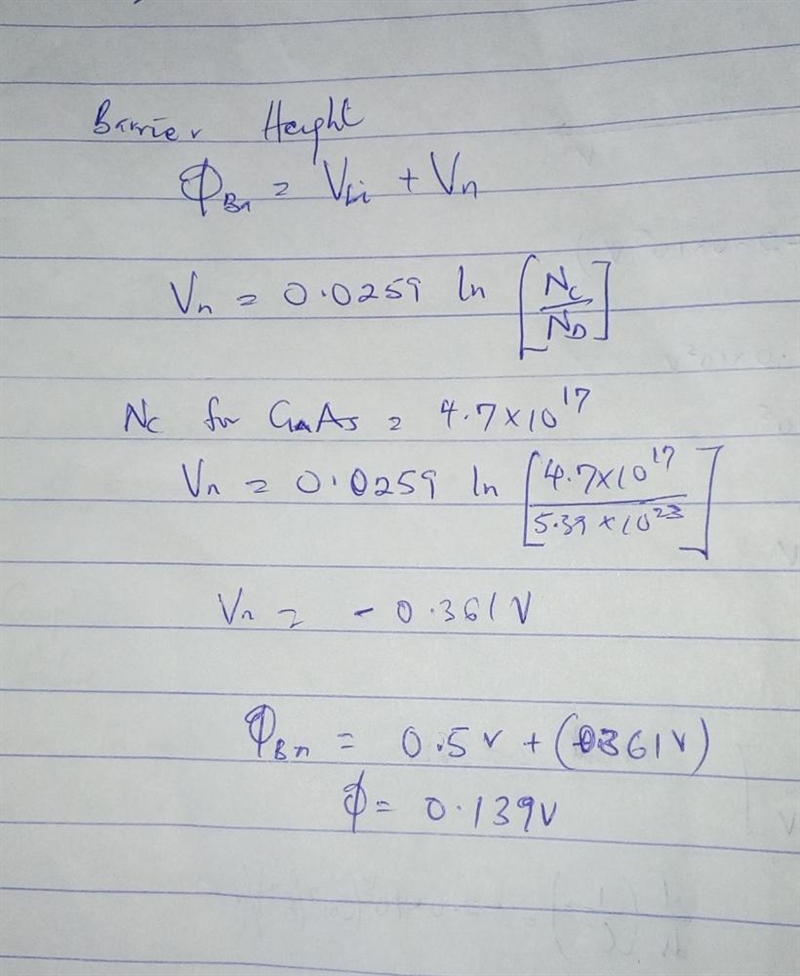 Barrier Height
Φ_Bn = V_bi + V_n
V_n = 0.0259 ln [N_C / N_D]
N_C for GaAs = 4.7×10^17
V_n = 0.0259 ln [4.7×10^17 / 5.39×10^23]
V_n = -0.361V
Φ_Bn = 0.5V + (-0.361V)
Φ = 0.139V